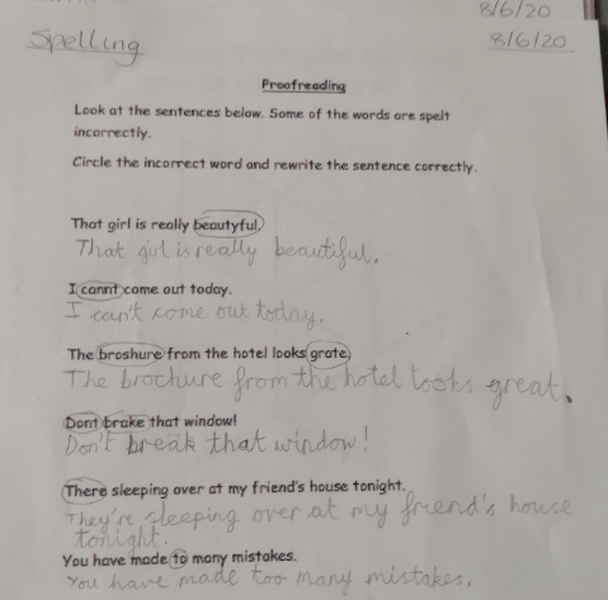 8/6/20
Spelling
8/6/20
Proofreading
Look at the sentences below. Some of the words are spelt
incorrectly.
Circle the incorrect word and rewrite the sentence correctly.
That girl is really beautyful.
That girl is really beautiful.
I cannt come out today.
I can't come out today.
The broshure from the hotel looks grate.
The brochure from the hotel looks great.
Dont brake that window!
Don't break that window!
There sleeping over at my friend's house tonight.
They're sleeping over at my friend's house
tonight.
You have made to many mistakes.
You have made too many mistakes.